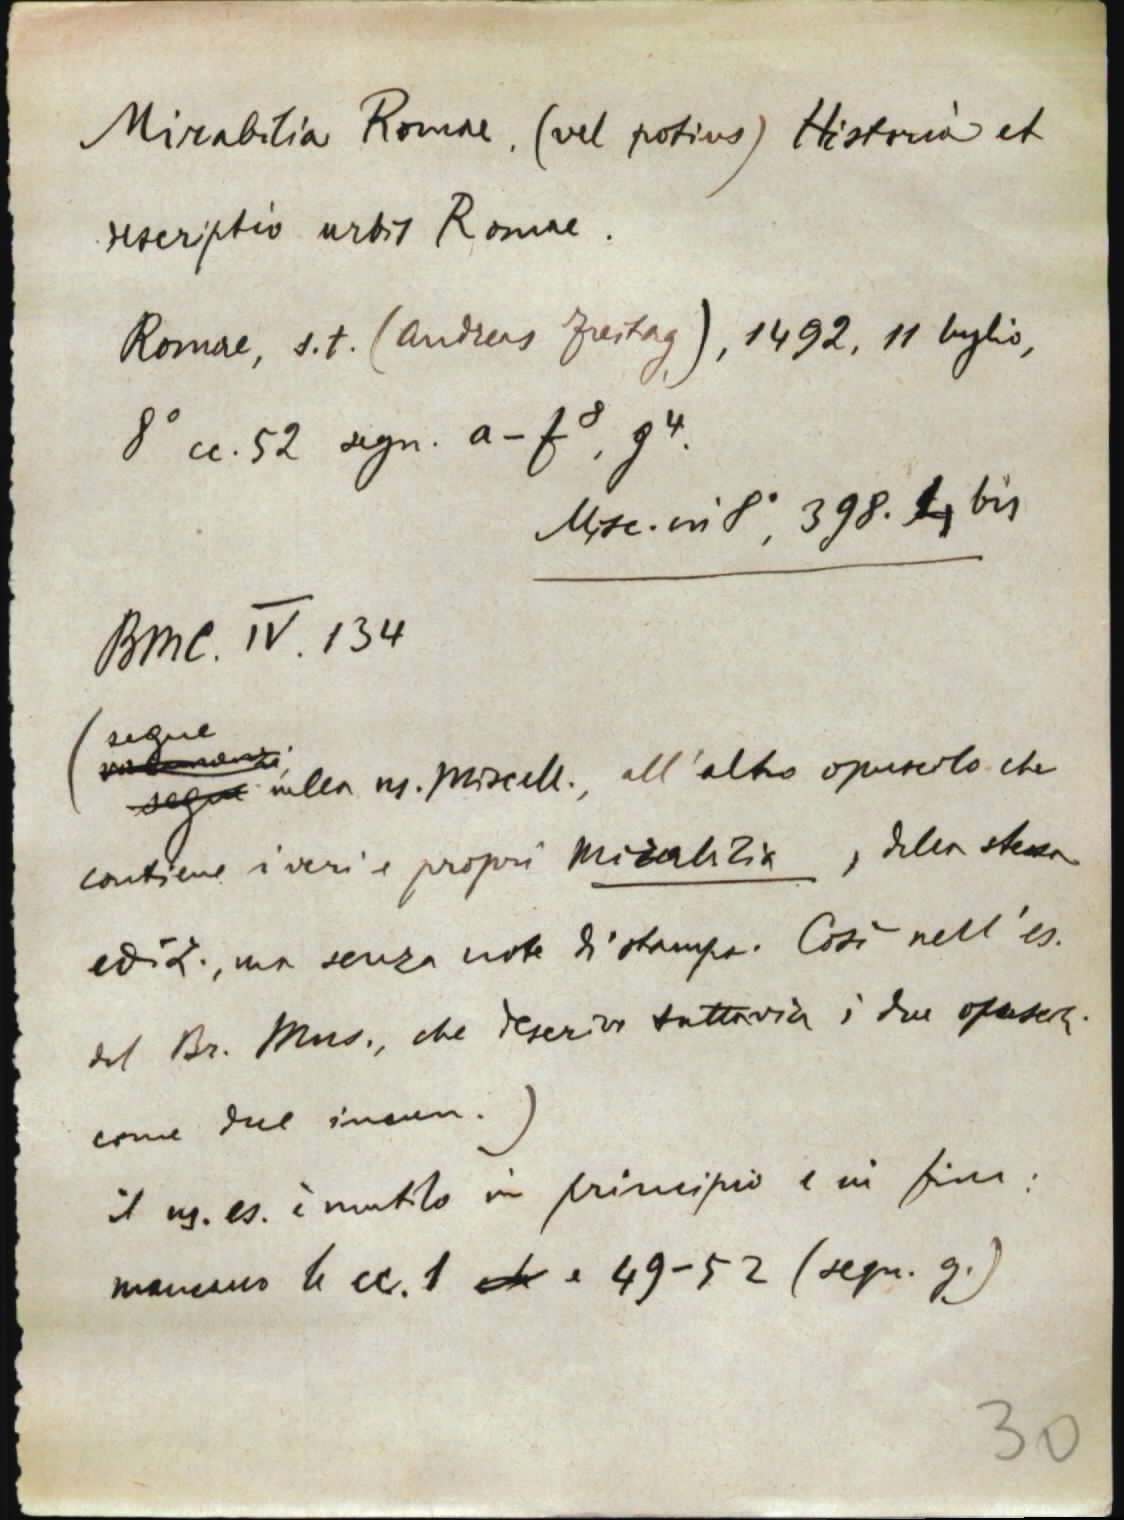 Mirabilia Romae, (vel potius) Historia et
descriptio urbis Romae.
Romae, s.t. (Andreas Freitag), 1492, 11 luglio,
8° cc. 52 segn. a-f⁸, g⁴.
Misc. in 8°, 398. bis
BMC. IV. 134
(segue
segue nella ns. Miscell., all'altro opuscolo che
contiene i veri e propri Mirabilia, della stessa
ediz., ma senza note di stampa. Così nell'es.
del Br. Mus., che descrive tuttavia i due opuscoli
come due incun.)
il ns. es. è mutilo in principio e in fine:
mancano le cc. 1 e 49-52 (segn. g.)
30